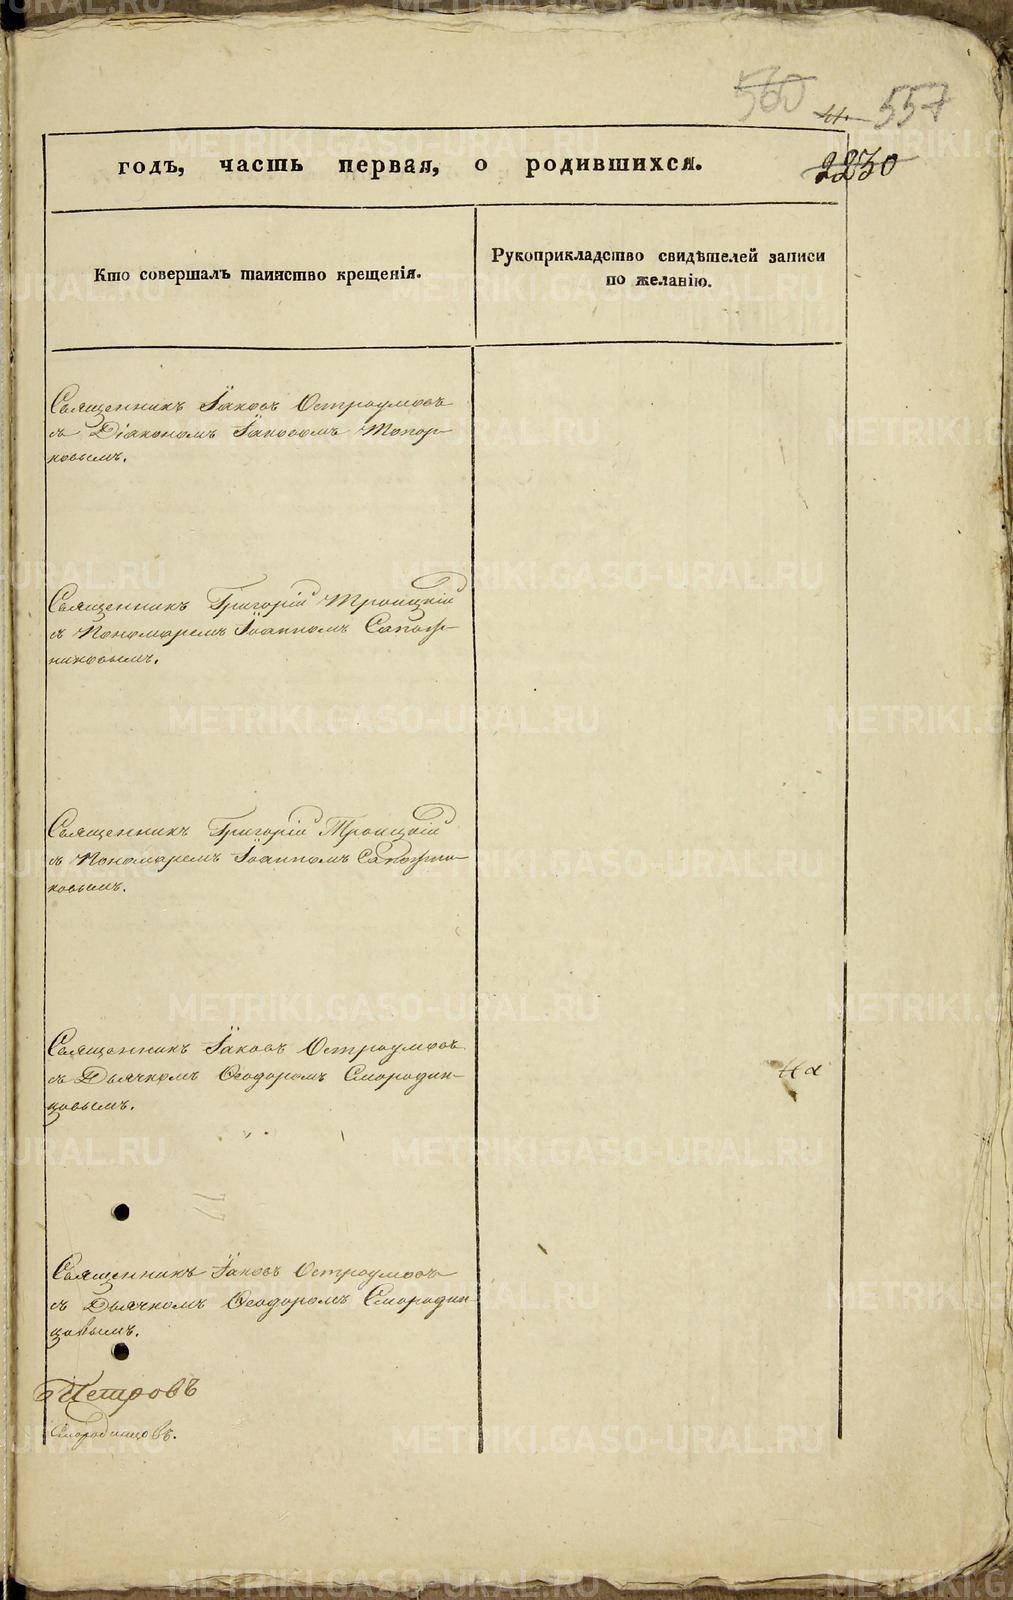 560 557
2230
годъ, часть первая, о родившихся.
Кто совершалъ таинство крещенія.
Рукоприкладство свидѣтелей записи
по желанію.
Священникъ Іаковъ Остроумовъ
съ Діакономъ Іаковомъ Топор-
ковымъ.
Священникъ Григорій Троицкій
съ Пономаремъ Іоанномъ Сапож-
никовымъ.
Священникъ Григорій Троицкій
съ Пономаремъ Іоанномъ Сапожни-
ковымъ.
Священникъ Іаковъ Остроумовъ
съ Дьячкомъ Ѳеодоромъ Смородин-
цовымъ.
Священникъ Іаковъ Остроумовъ
съ Дьячкомъ Ѳеодоромъ Смородин-
цовымъ.
Петровъ
Смородинцовъ.
METRIKI.GASO-URAL.RU